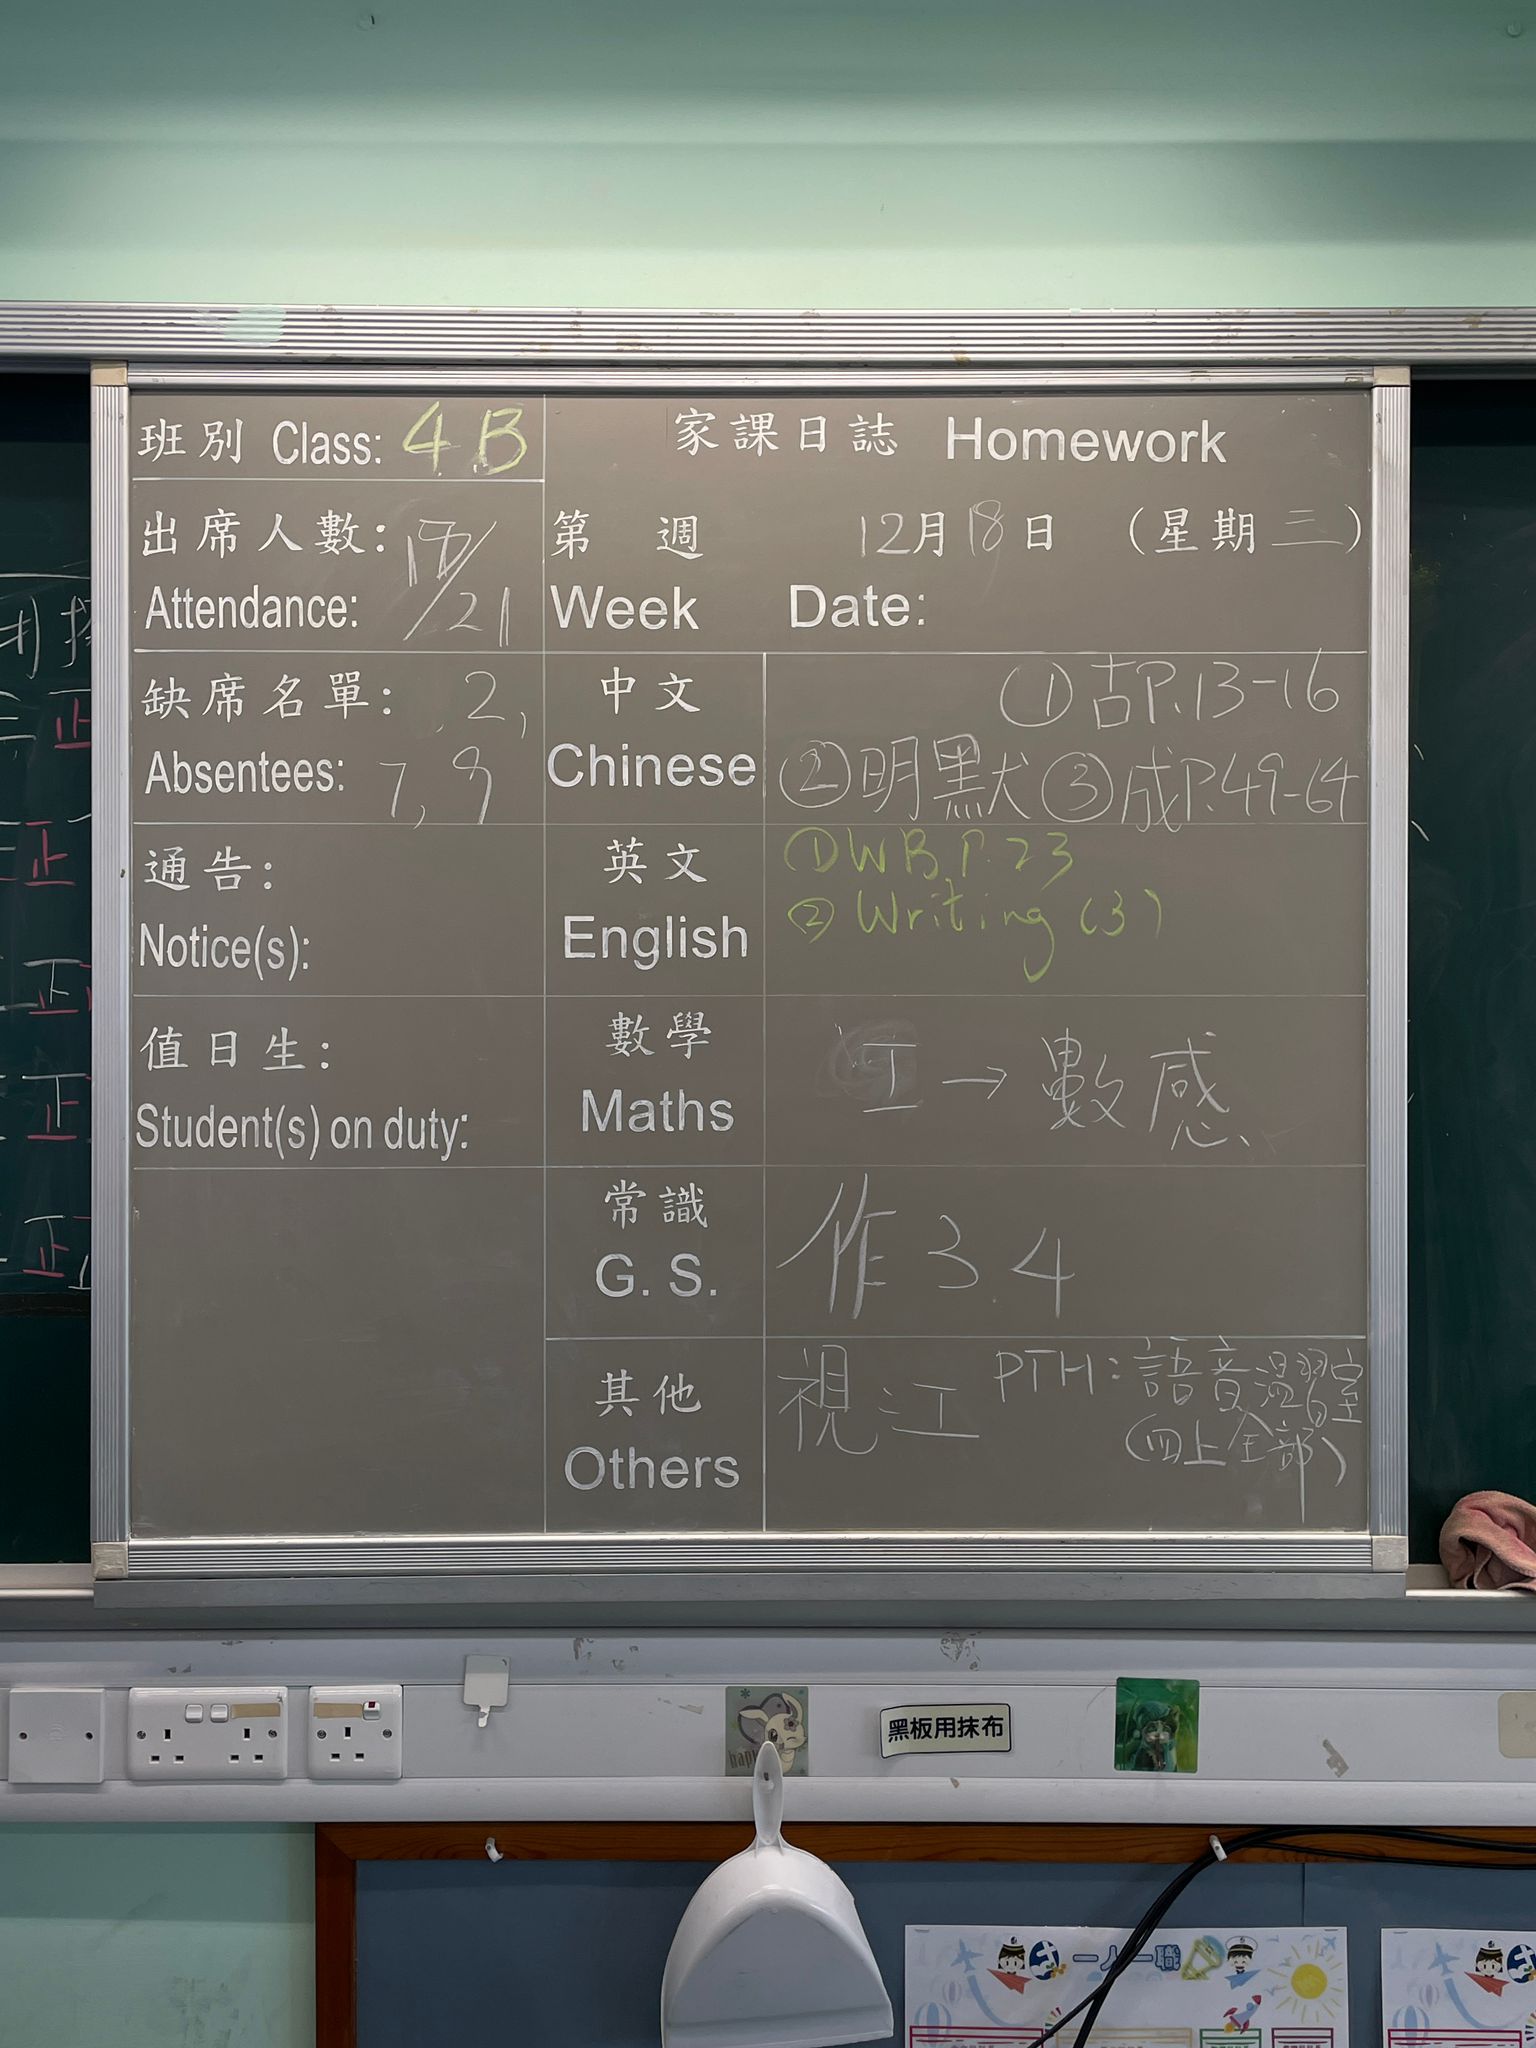 班別 Class: 4B
家課日誌 Homework
出席人數:
Attendance: 18/21
第 週 12月18日 (星期三)
Week Date:
缺席名單: 2,
Absentees: 7, 9
中文 ①古P.13-16
Chinese ②明默 ③成P.49-64
通告:
Notice(s):
英文 ①WB P.23
English ② Writing (3)
值日生:
Student(s) on duty:
數學
Maths 工→數感
常識
G. S. 作 3.4
其他 視:工 PTH:語音溫習室
Others (四上全部)
黑板用抹布
一人一職